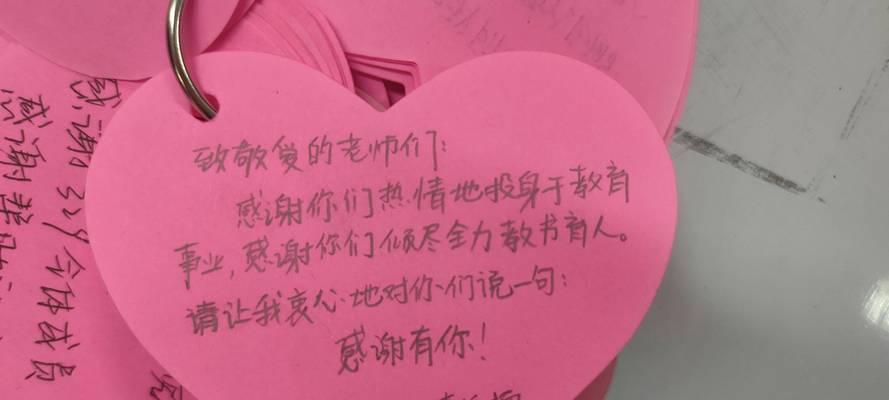 致敬爱的老师们：
感谢你们热情地投身于教育
事业，感谢你们倾尽全力教书育人。
请让我衷心地对你们说一句：
感谢有你！
感谢 329 全体成员
感谢